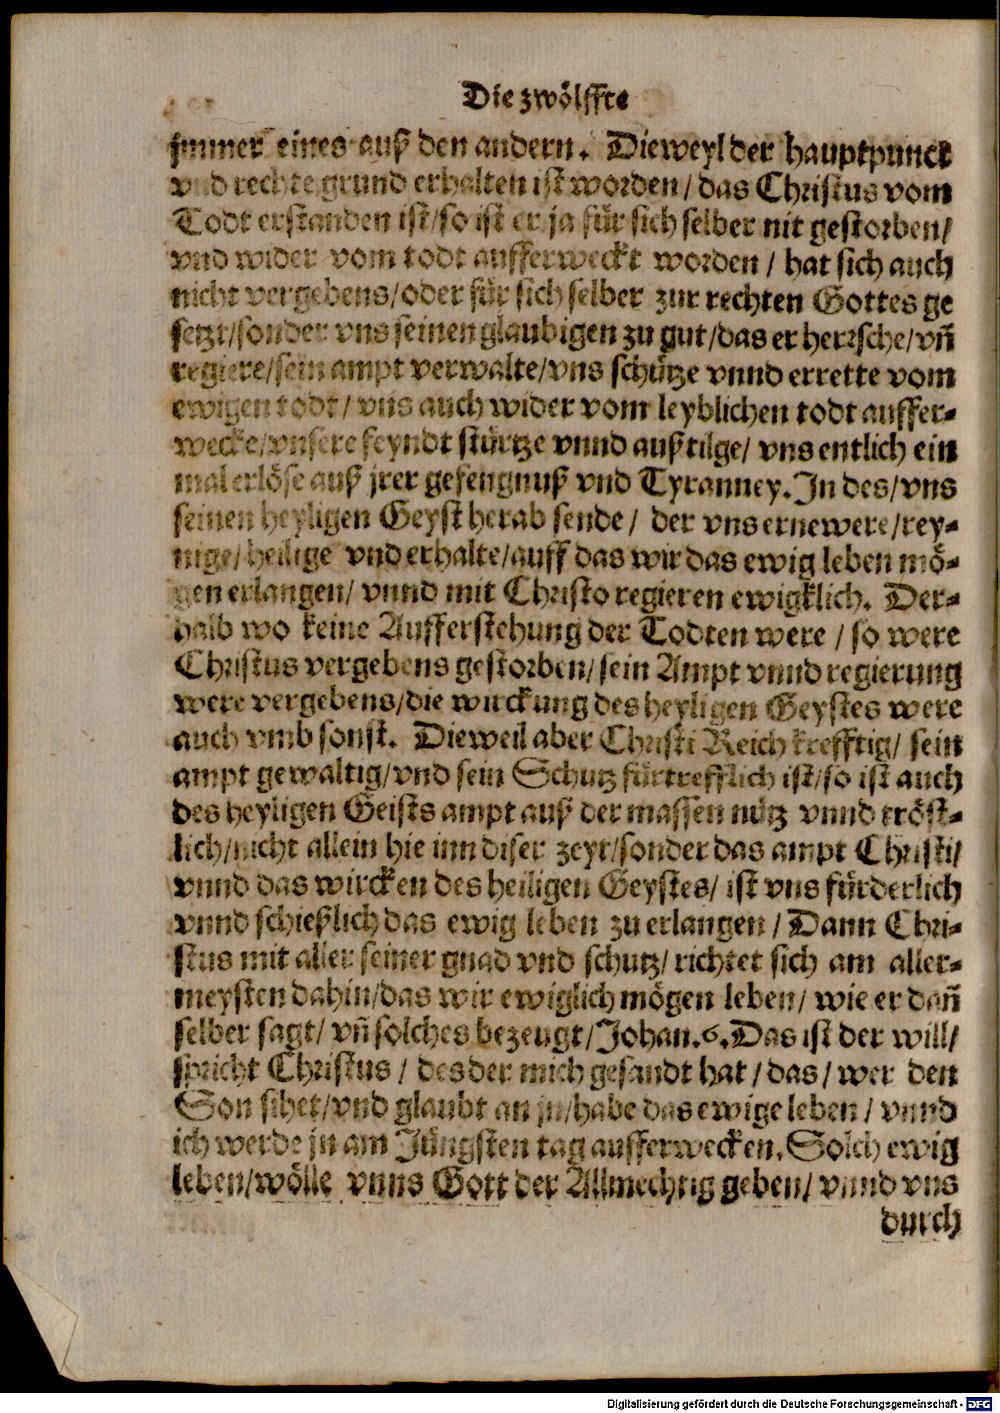 Die zwölffte
jmmer eines auß den andern. Dieweyl der hauptpunct
vnd rechte grund erhalten ist worden/ das Christus vom
Todt erstanden ist/ so ist er ja für sich selber nit gestorben/
vnd wider vom todt aufferweckt worden/ hat sich auch
nicht vergebens/ oder für sich selber zur rechten Gottes ge
setzt/ sonder vns seinen glaubigen zu gut/ das er herrsche/ vñ
regiere/ sein ampt verwalte/ vns schütze vnnd errette vom
ewigen todt/ vns auch wider vom leyblichen todt auffer-
wecke/ vnsere feyndt stürtze vnnd außtilge/ vns entlich ein
mal erlöse auß jrer gefengnuß vnd Tyranney. In des/ vns
seinen heyligen Geyst herab sende/ der vns ernewere/ rey-
nige/ heilige vnd erhalte/ auff das wir das ewig leben mö-
gen erlangen/ vnnd mit Christo regieren ewigklich. Der-
halb wo keine Aufferstehung der Todten were/ so were
Christus vergebens gestorben/ sein Ampt vnnd regierung
were vergebens/ die wirckung des heyligen Geystes were
auch vmb sonst. Dieweil aber Christi Reich krefftig/ sein
ampt gewaltig/ vnd sein Schutz fürtrefflich ist/ so ist auch
des heyligen Geists ampt auß der massen nütz vnnd tröst-
lich/ nicht allein hie inn diser zeyt/ sonder das ampt Christi/
vnnd das wircken des heiligen Geystes/ ist vns fürderlich
vnnd schießlich das ewig leben zu erlangen/ Dann Chri-
stus mit aller seiner gnad vnd schutz/ richtet sich am aller-
meysten dahin/ das wir ewiglich mögen leben/ wie er dañ
selber sagt/ vñ solches bezeugt/ Johan. 6. Das ist der will/
spricht Christus/ des der mich gesandt hat/ das/ wer den
Son sihet/ vnd glaubt an jn/ habe das ewige leben/ vnnd
ich werde jn am Jüngsten tag aufferwecken. Solch ewig
leben/ wölle vnns Gott der Allmechtig geben/ vnnd vns
durch
Digitalisierung gefördert durch die Deutsche Forschungsgemeinschaft - DFG